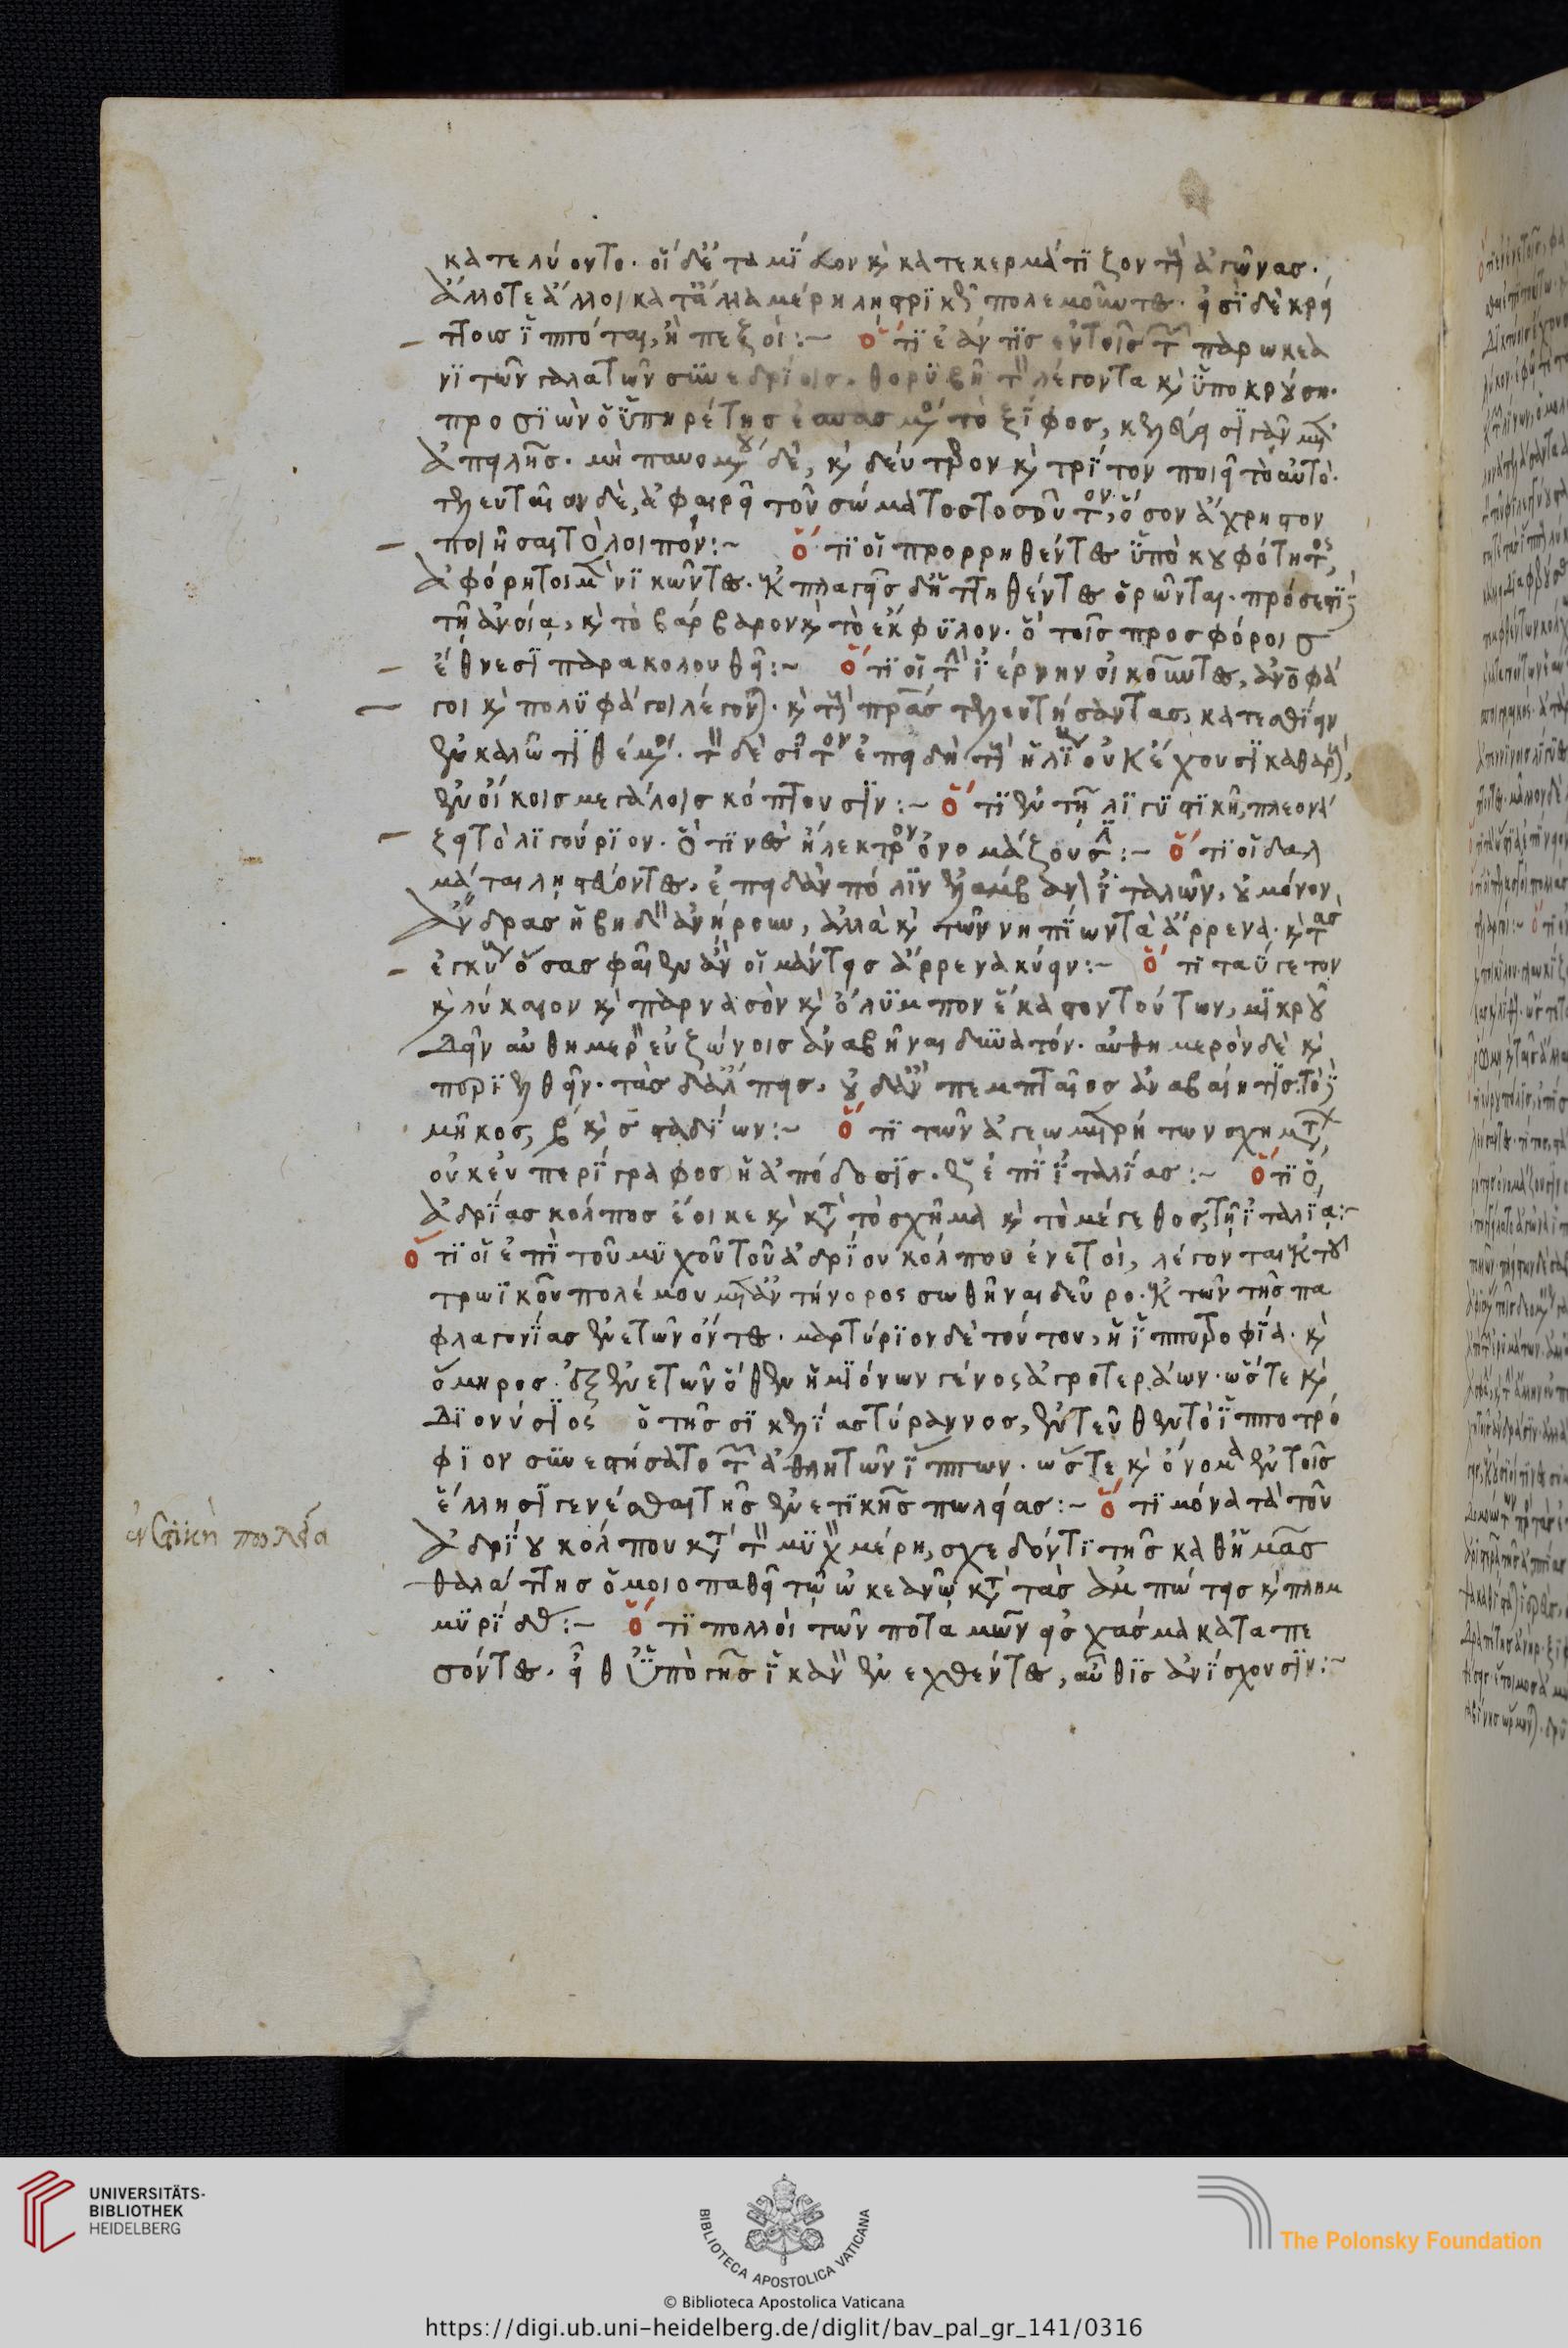 κατελύοντο· οἱ δὲ ταμίευον κ κατεκερμάτιζον τοὺς ἀγῶνας·
ἄλλοτε ἄλλοι κατ' ἄλλα μέρη ληστρικῶς πολεμοῦντες· εἰσὶ δὲ κρεί
ττους ἱππόται, ἢ πεζοί:~ ὅτι ἐάν τις ἐν τοῖς τῶν παρωκεα
νιτῶν γαλατῶν συνεδρίοις θορυβῇ τὸν λέγοντα κ ὑποκρούσῃ·
προσιὼν ὁ ὑπηρέτης ἐσπασμένος τὸ ξίφος, κελεύει σιγᾶν μετ'
ἀπειλῆς· μὴ παυομένου δὲ, κ δεύτερον κ τρίτον ποιεῖ τὸ αὐτό·
τελευταῖον δὲ, ἀφαιρεῖ τοῦ σώματος τοσοῦτον, ὅσον ἄχρηστον
ποιῆσαι τὸ λοιπόν:~ ὅτι οἱ προρρηθέντες ὑπὸ κουφότητος,
ἀφόρητοι μὲν νικῶντες· ἐκπλαγεῖς δ' ἡττηθέντες ὁρῶνται· πρόσεστι
τῇ ἀνοίᾳ, κ τὸ βάρβαρον κ τὸ ἔκφυλον· ὃ τοῖς προσβόροις
ἔθνεσι παρακολουθεῖ:~ ὅτι οἱ τὴν ἰέρνην οἰκοῦντες, ἀνθρωποφά
γοι κ πολυφάγοι λέγονται· κ τοὺς πρας τελευτήσαντας, κατεσθίειν
ἐν καλῷ τιθέμενοι· τὸν δὲ σῖτον ἐπειδὴ τοὺς ἡλίους οὐκ ἔχουσι καθαροὺς,
ἐν οἴκοις μεγάλοις κόπτουσιν:~ ὅτι ἐν τῇ λιγυστικῇ, πλεονά
ζει τὸ λιγούριον· ὅ τινες ἤλεκτρον ὀνομάζουσι:~ ὅτι οἱ δαλ
μάται λῃστεύοντες, ἐπειδὰν πόλιν λάμβαν ἰταλῶν, οὐ μόνον
ἄνδρας ἡβηδὸν ἀνῄρουν, ἀλλὰ κ τῶν νηπίων τὰ ἄρρενα· κ τὰς
ἐγκύους ὅσας φαῖεν ἂν οἱ μάντεις ἄρρενα κύειν:~ ὅτι ταΰγετον
κ λύκαιον κ παρνασὸν κ ὄλυμπον ἕκαστον τούτων, μικροῦ
δεῖν αὐθημερὸν εὐζώνοις ἀναβῆναι δυνατόν· αὐθημερὸν δὲ κ
περιελθεῖν· τὰς δ' ἄλπεις, οὐδ' ἂν πεμπταῖος ἀναβαίη τις· τὸ
μῆκος, β κ σ σταδίων:~ ὅτι τῶν ἀγεωμετρήτων σχημάτων,
οὐκ εὐπερίγραφος ἡ ἀπόδοσις· ὡς ἐπὶ ἰταλίας:~ ὅτι ὁ
ἀδρίας κόλπος ἔοικε κ κατὰ τὸ σχῆμα κ τὸ μέγεθος, τῇ ἰταλίᾳ:~
ὅτι οἱ ἐπὶ τοῦ μυχοῦ τοῦ ἀδρίου κόλπου ἐνετοὶ, λέγονται ἐκ τοῦ
τρωϊκοῦ πολέμου μετ' ἀντήνορος σωθῆναι δεῦρο· ἐκ τῶν τῆς πα
φλαγονίας ἐνετῶν ὄντες· μαρτύριον δὲ τούτου, ἡ ἱπποτροφία· κ
ὅμηρος· ἐξ ἐνετῶν ὅθεν ἡμιόνων γένος ἀγροτεράων· ὥστε κ
διονύσιος ὁ τῆς σικελίας τύραννος, ἐντεῦθεν τὸ ἱπποτρό
φιον συνεστήσατο τῶν ἀθλητῶν ἵππων· ὥστε κ ὄνομα ἐν τοῖς
ἕλλησι γενέσθαι τῆς ἐνετικῆς πωλείας:~ ὅτι μόνα τὰ τοῦ
ἀδρίου κόλπου κατὰ τὸν μυχὸν μέρη, σχεδόν τι τῆς καθ' ἡμᾶς
θαλάττης ὁμοιοπαθεῖ τῷ ὠκεανῷ κατὰ τὰς ἀμπώτεις κ πλημ
μυρίδας:~ ὅτι πολλοὶ τῶν ποταμῶν εἰς χάσμα καταπε
σόντες· εἶθ' ὑπὸ γῆς ἱκανὸν ἐνεχθέντες, αὖθις ἀνίσχουσιν:~
ἐνετικὴ πωλεία
UNIVERSITÄTS-
BIBLIOTHEK
HEIDELBERG
BIBLIOTECA APOSTOLICA VATICANA
The Polonsky Foundation
© Biblioteca Apostolica Vaticana
https://digi.ub.uni-heidelberg.de/diglit/bav_pal_gr_141/0316